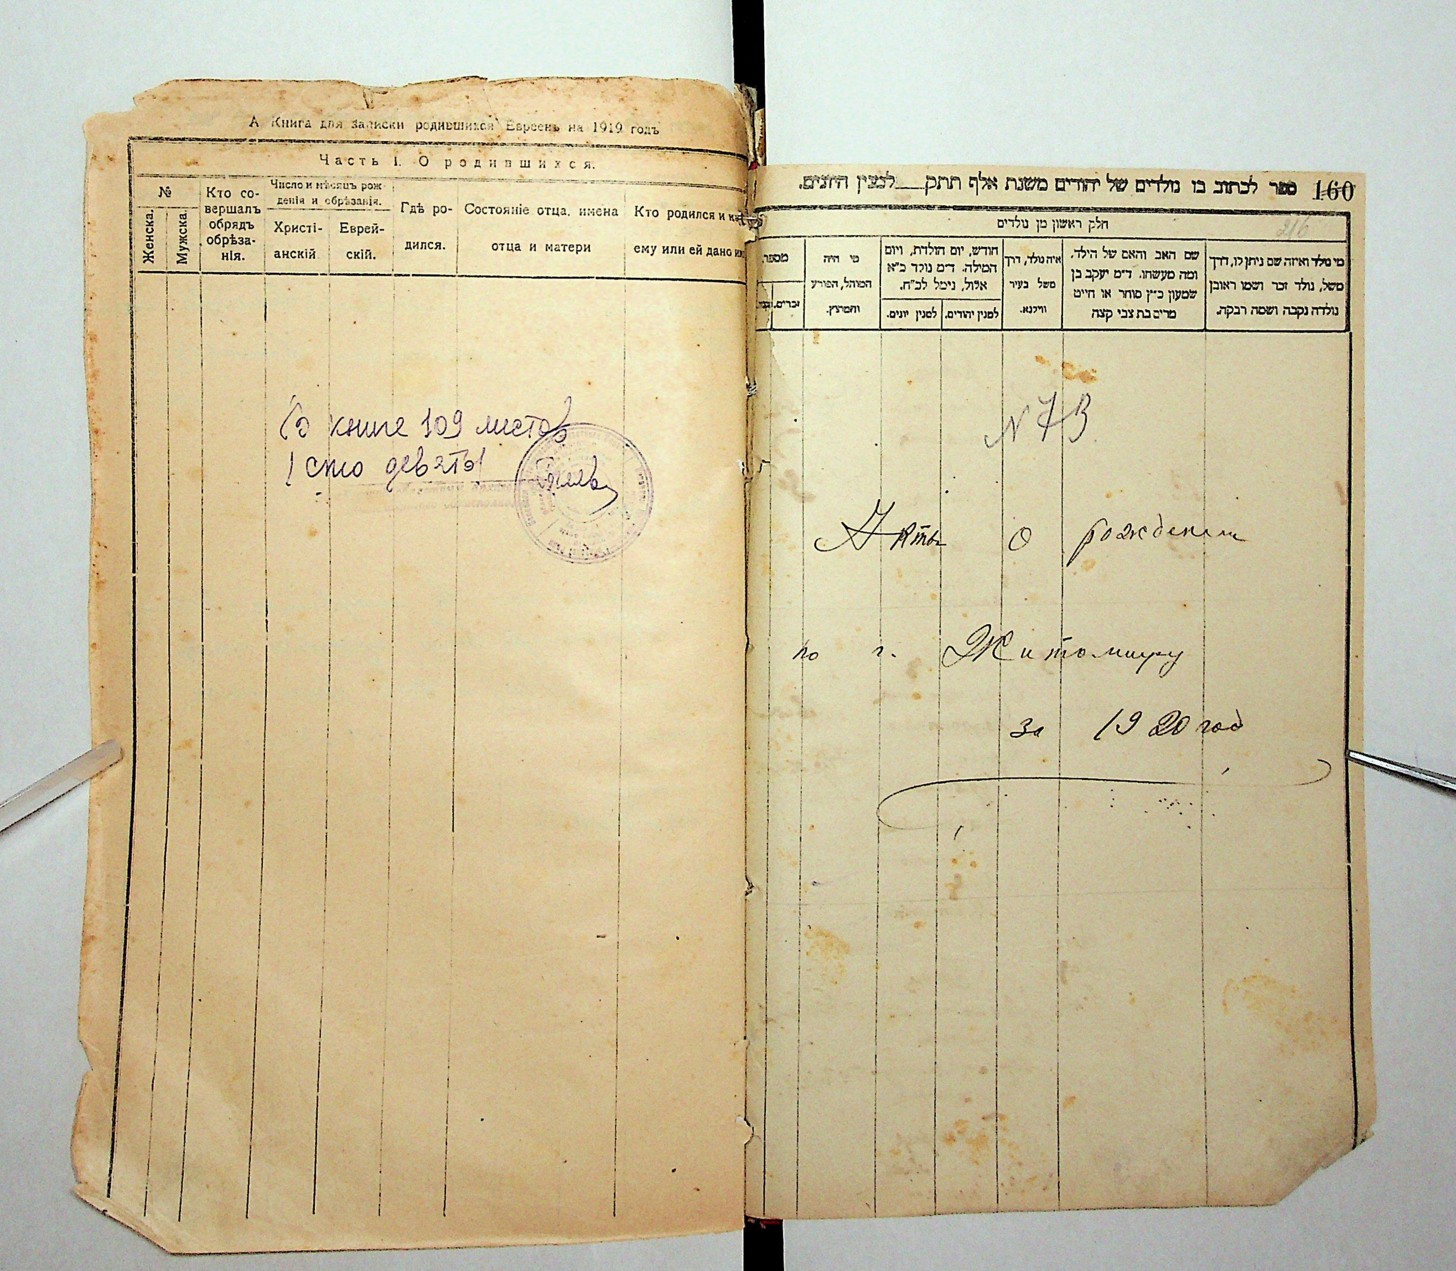 А Книга для записки родившихся Евреевъ на 1919 годъ
Часть I. О родившихся.
№
Женска.
Мужска.
Кто со-
вершалъ
обрядъ
обрѣза-
нія.
Число и мѣсяцъ рож-
денія и обрѣзанія.
Христі-
анскій
Еврей-
скій.
Гдѣ ро-
дился.
Состояніе отца, имена
отца и матери
Кто родился и
ему или ей дано
книге 109 листов
сто девять
ספר לכתוב בו נולדים של יהודים משנת אלף תתק___ למנין היונים.
160
216
חלק ראשון מן נולדים
מספר
זכרים.
מי היה
המוהל, הפורע
והמוצץ.
חודש, יום הולדת, ויום
המילה. ד״מ נולד כ״א
אלול, נימל לכ״ח.
למנין יונים.
למנין יהודים.
איה נולד, דרך
משל בעיר
ווילנא.
שם האב והאם של הילד.
ומה מעשהו. ד״מ יעקב בן
שמעון כ״ץ סוחר או חייט
מרים בת צבי קצה
מי נולד ואיזה שם ניתן לו, דרך
משל, נולד זכר ושמו ראובן
נולדה נקבה ושמה רבקה.
N 73
Акты о рождении
по г. Житомиру
за 1920 год